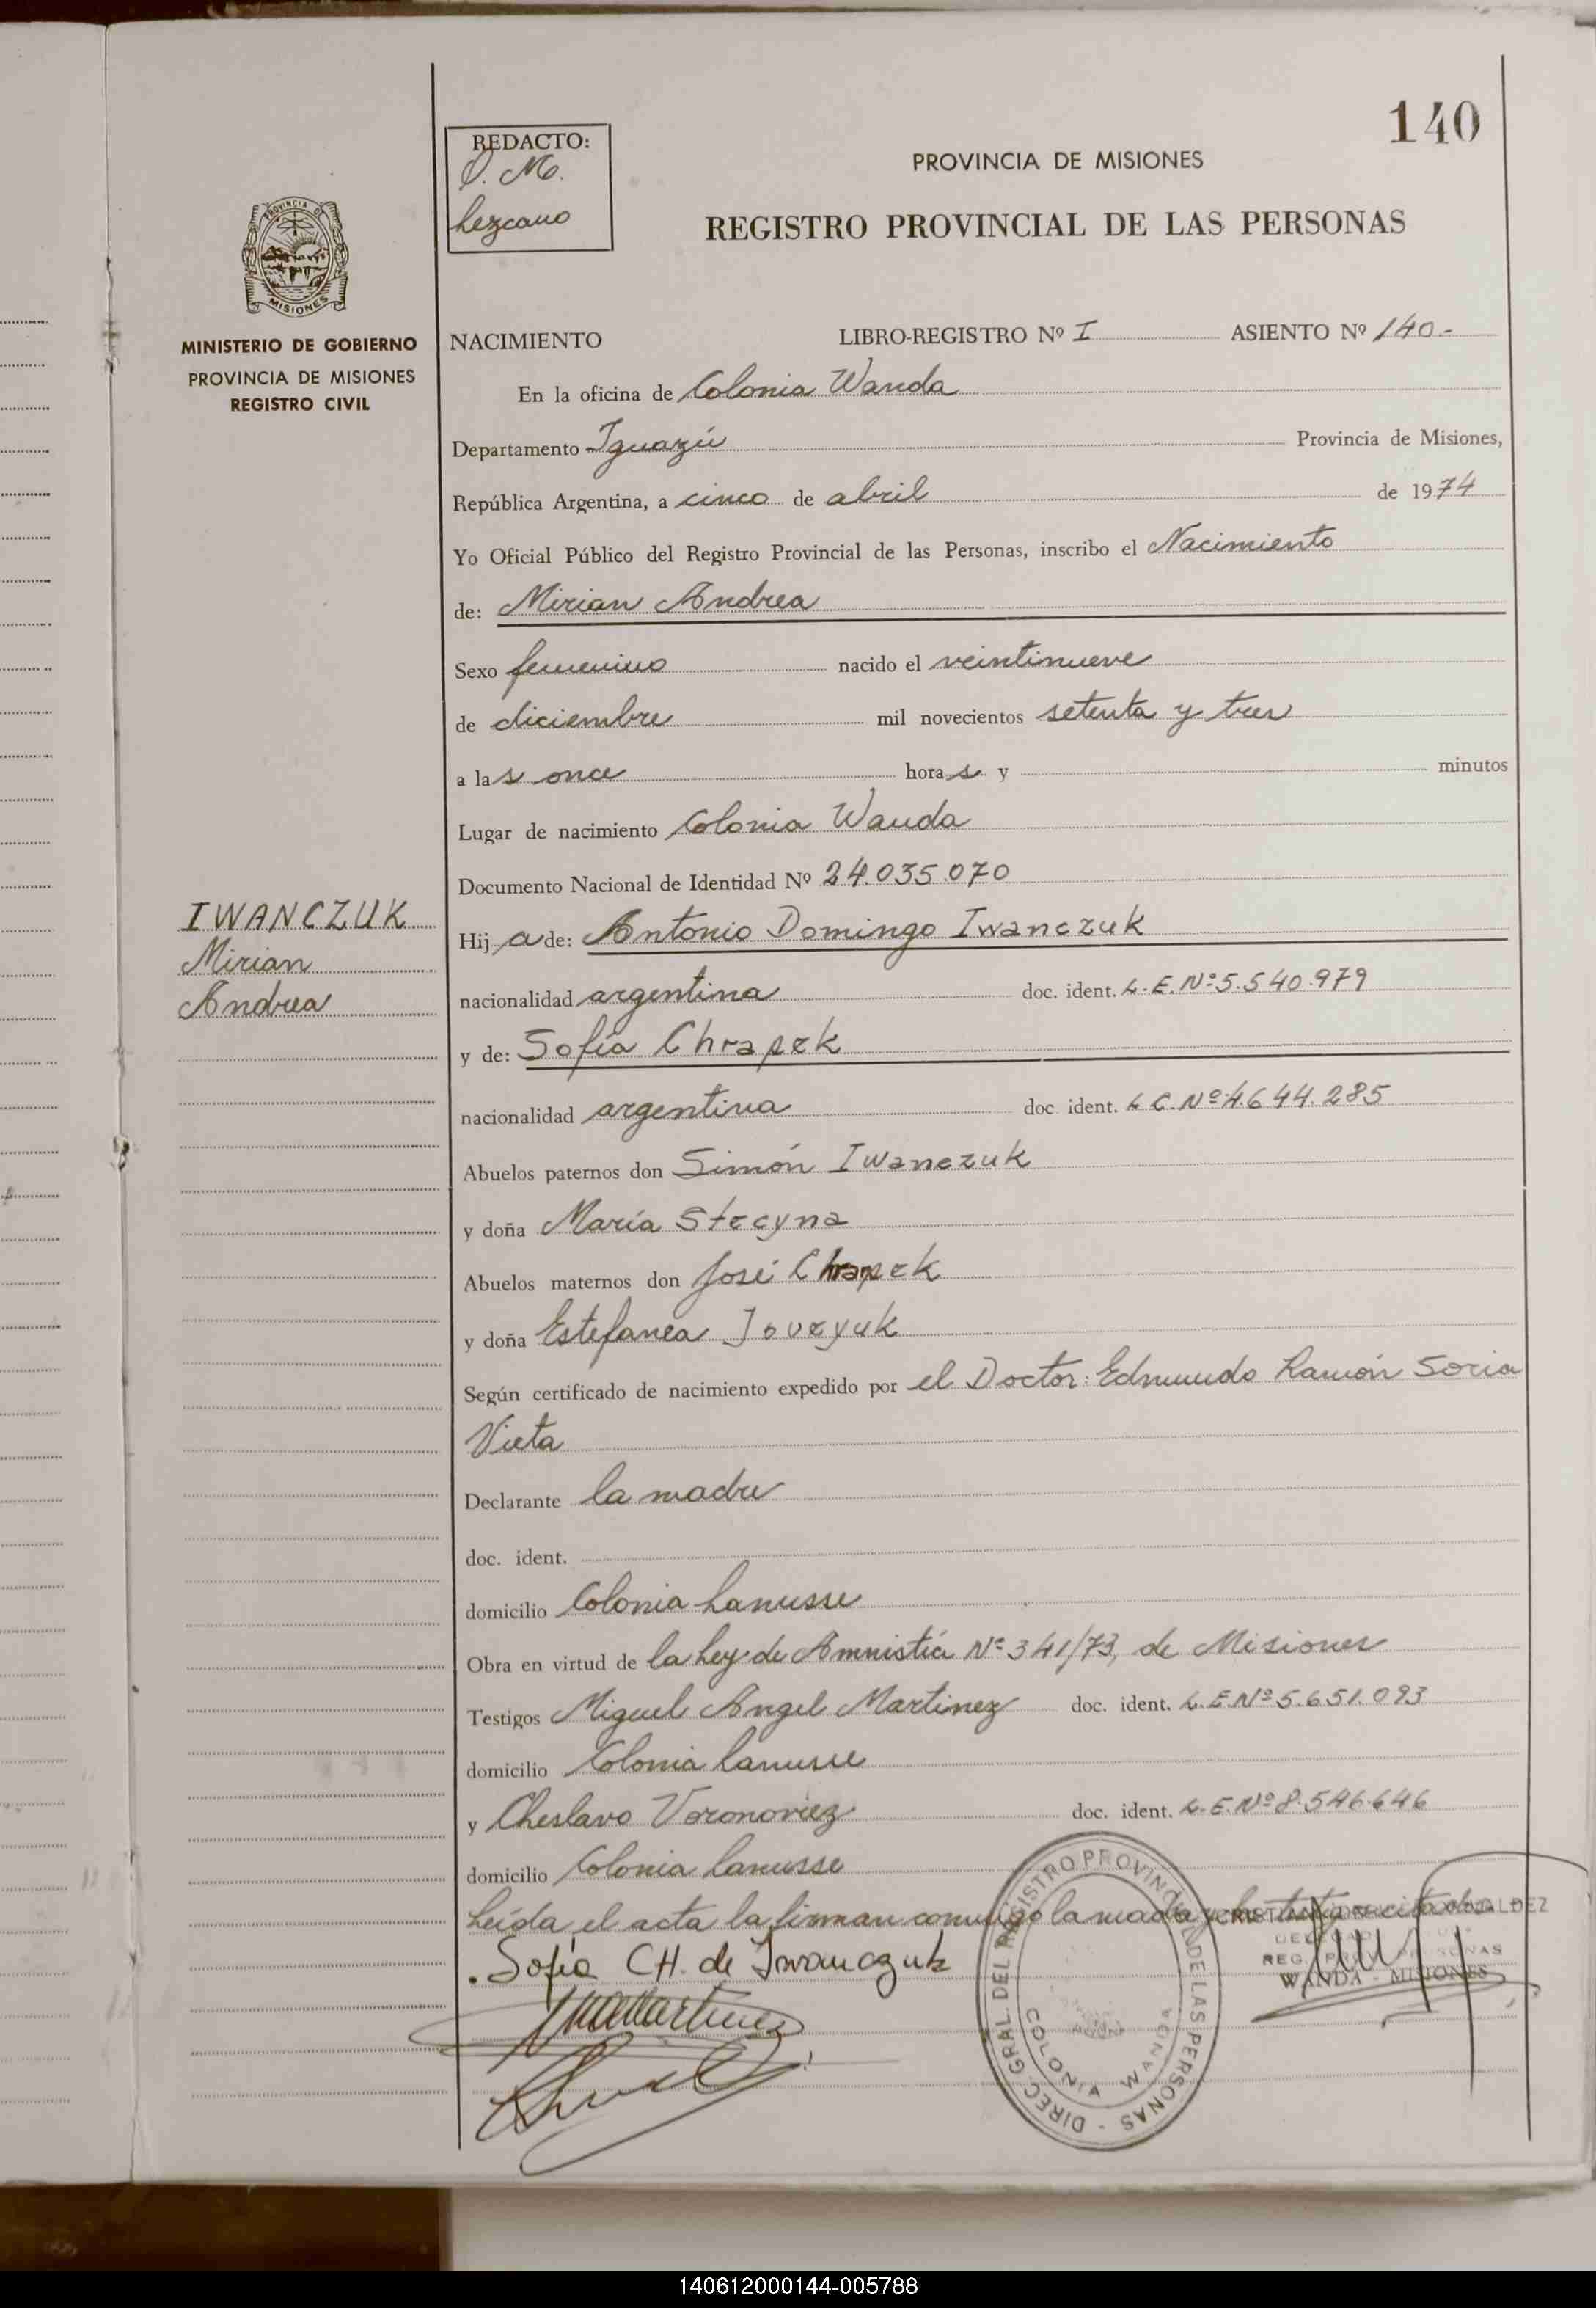 140
REDACTO:
O. M.
Lezcano
PROVINCIA DE MISIONES
REGISTRO PROVINCIAL DE LAS PERSONAS
PROVINCIA DE
MISIONES
MINISTERIO DE GOBIERNO
PROVINCIA DE MISIONES
REGISTRO CIVIL
NACIMIENTO LIBRO-REGISTRO Nº I ASIENTO Nº 140.-
En la oficina de Colonia Wanda
Departamento Iguazú Provincia de Misiones,
República Argentina, a cinco de abril de 1974
Yo Oficial Público del Registro Provincial de las Personas, inscribo el Nacimiento
de: Mirian Andrea
Sexo femenino nacido el veintinueve
de diciembre mil novecientos setenta y tres
a las once horas y minutos
Lugar de nacimiento Colonia Wanda
Documento Nacional de Identidad Nº 24.035.070
IWANCZUK
Mirian
Andrea
Hija de: Antonio Domingo Iwanczuk
nacionalidad argentina doc. ident. L.E.Nº 5.540.979
y de: Sofía Chrapek
nacionalidad argentina doc ident. L C.Nº 4.644.285
Abuelos paternos don Simón Iwanczuk
y doña María Stecyna
Abuelos maternos don José Chrapek
y doña Estefanea
Según certificado de nacimiento expedido por el Doctor: Edmundo Ramón Soria
Vieta
Declarante la madre
doc. ident.
domicilio Colonia Lanusse
Obra en virtud de la Ley de Amnistía Nº 341/73, de Misiones
Testigos Miguel Angel Martinez doc. ident. L.E.Nº 5.651.093
domicilio Colonia Lanusse
y Cheslavo Voronoviez doc. ident. L.E.Nº 8.546.646
domicilio Colonia Lanusse
Leída el acta la firman conmigo la madre y los testigos citados.
Sofía CH. de Iwanczuk
DIREC GRAL. DEL REGISTRO PROVINCIAL DE LAS PERSONAS -
COLONIA WANDA
REG. PROV. PERSONAS
WANDA - MISIONES
140612000144-005788